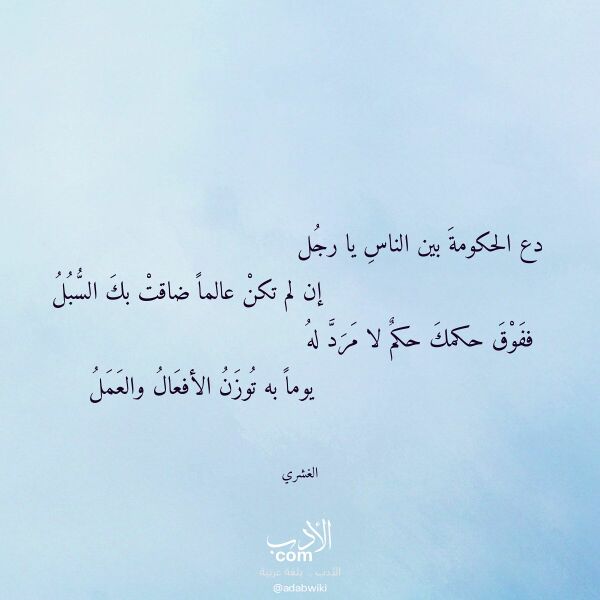 دع الحكومةَ بين الناسِ يا رجُل
إن لم تكنْ عالماً ضاقتْ بكَ السُّبُلُ
ففَوْقَ حكمكَ حكمٌ لا مَرَدَّ لهُ
يوماً به تُوزَنُ الأفعَالُ والعَمَلُ
الغشري
الأدب
com
الأدب .. بلغة عربية
@adabwiki